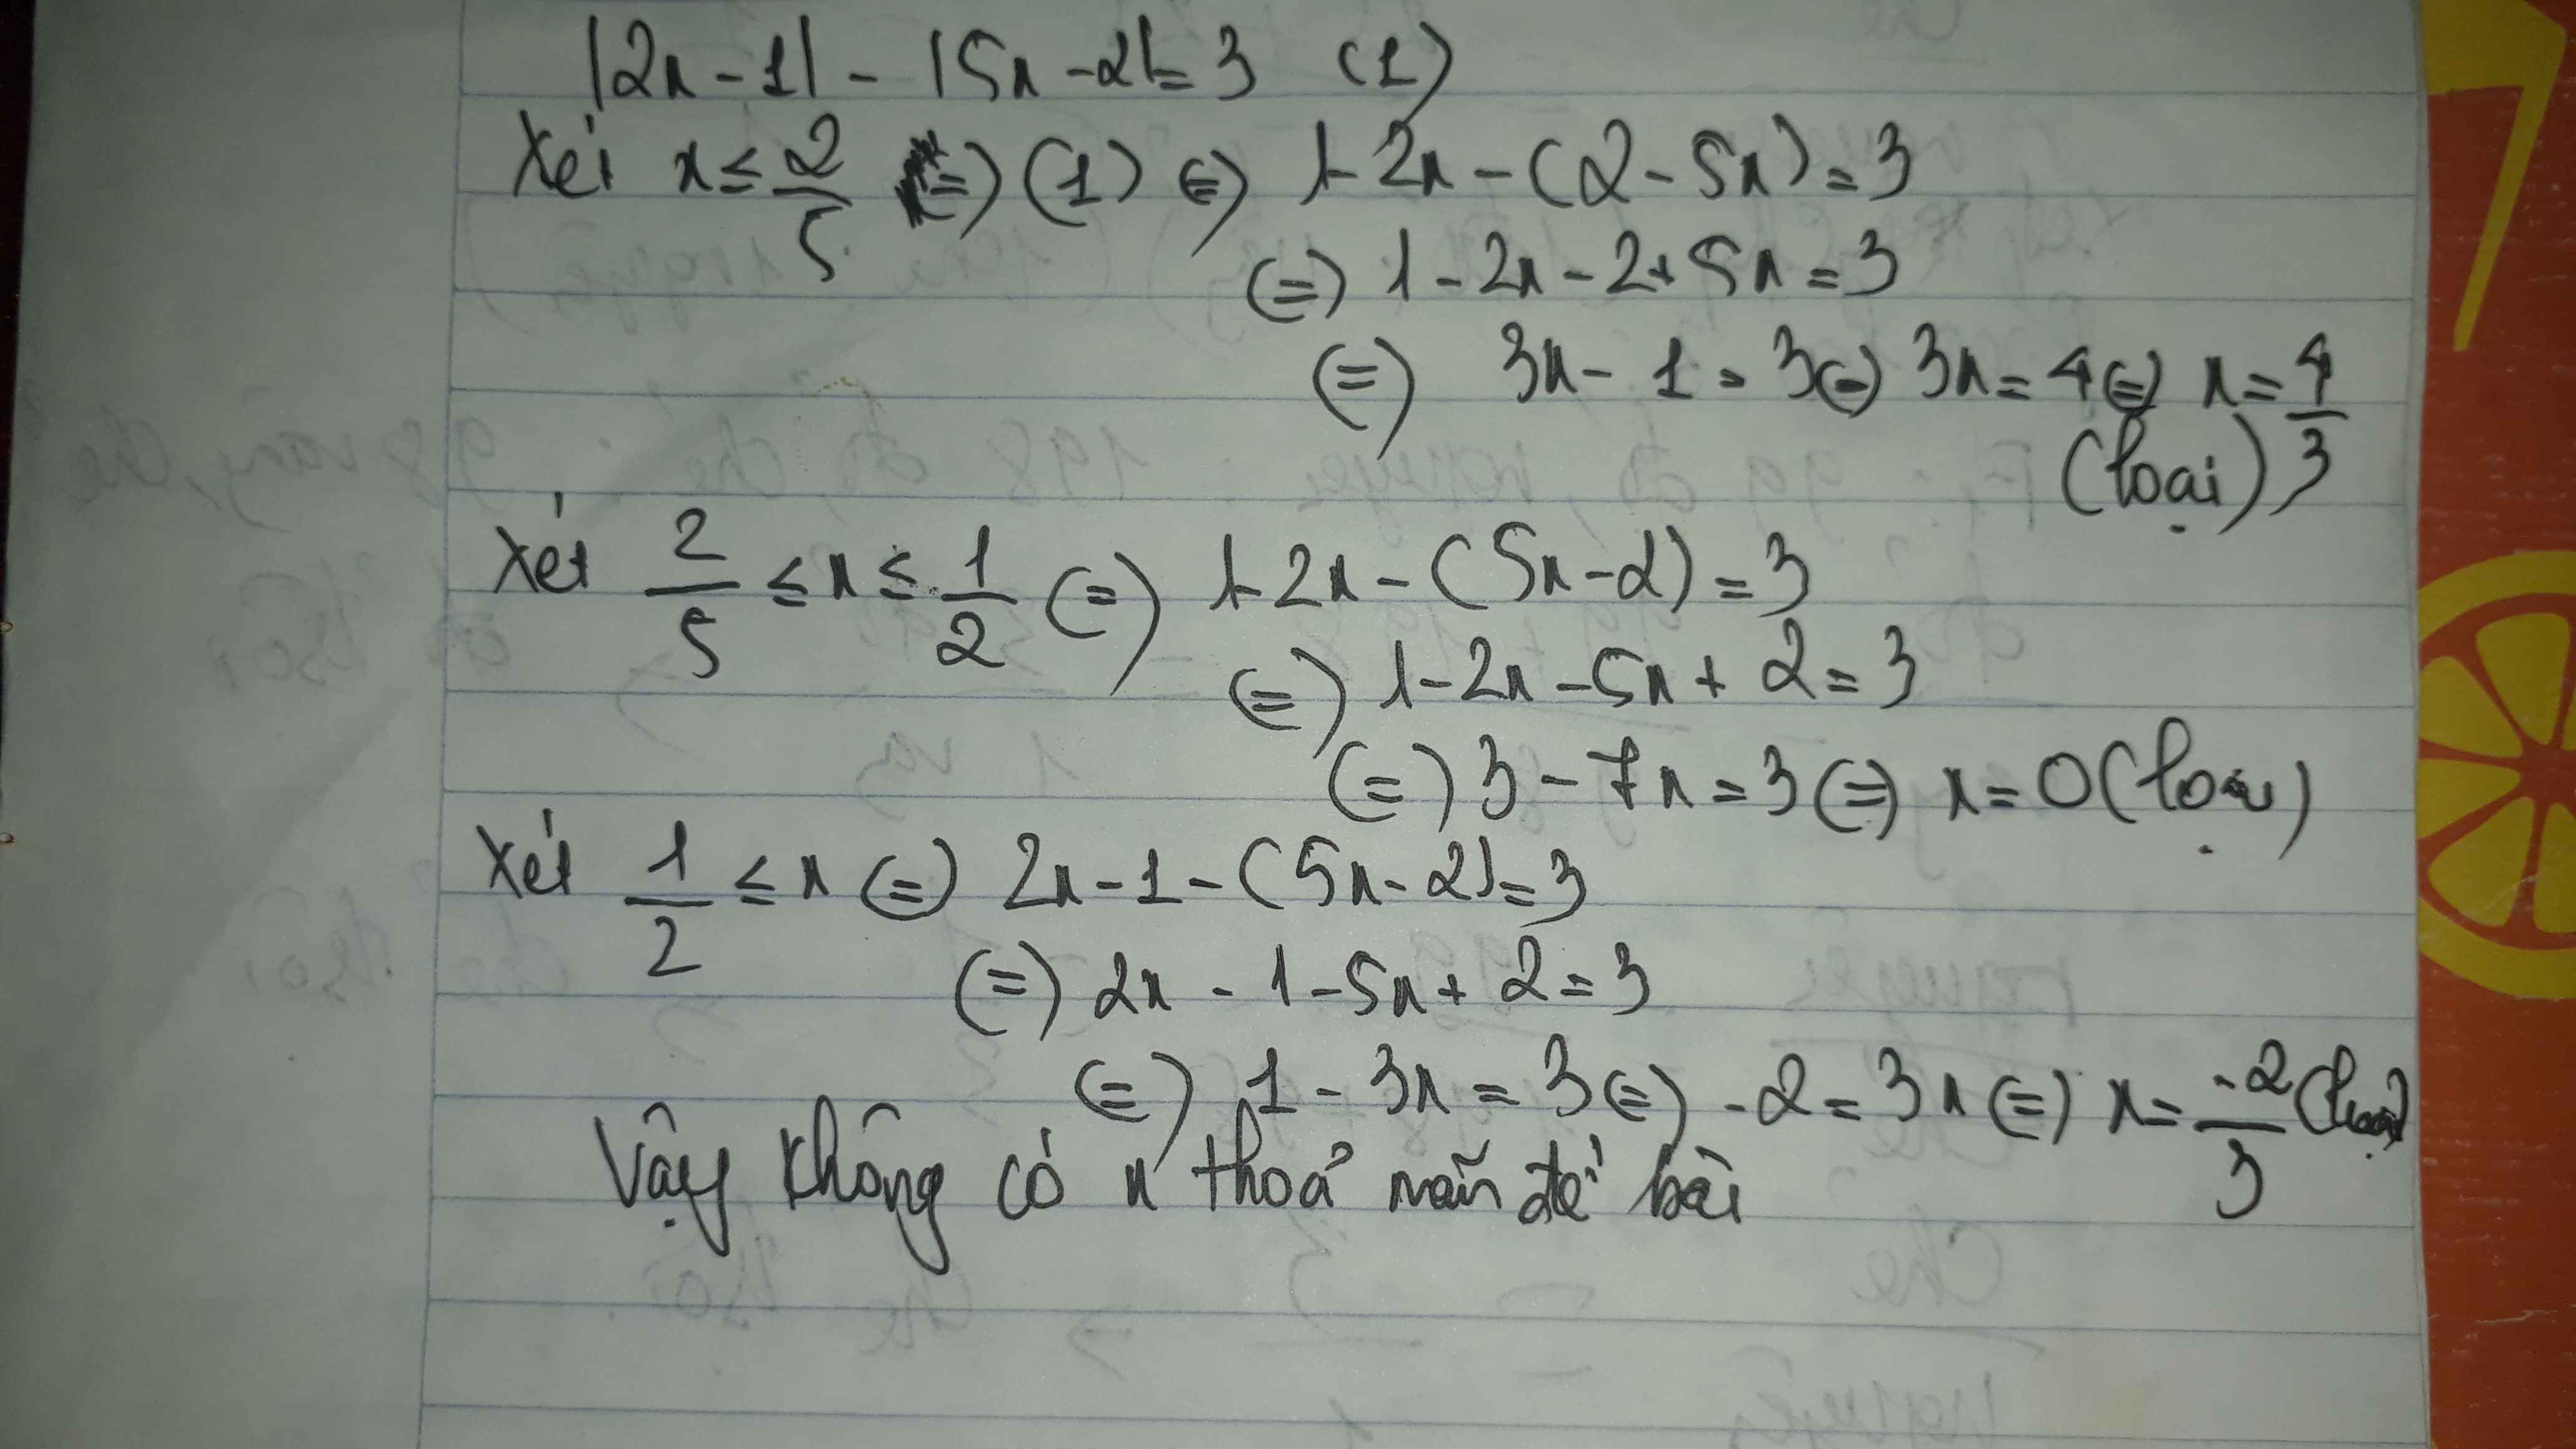 |2x - 1| - |5x - 2| = 3 (1)
Xét x ≤ 2/5 => (1) (=) 1 - 2x - (2 - 5x) = 3
(=) 1 - 2x - 2 + 5x = 3
(=) 3x - 1 = 3 (=) 3x = 4 (=) x = 4/3
(loại)
Xét 2/5 ≤ x ≤ 1/2 (=) 1 - 2x - (5x - 2) = 3
(=) 1 - 2x - 5x + 2 = 3
(=) 3 - 7x = 3 (=) x = 0 (loại)
Xét 1/2 ≤ x (=) 2x - 1 - (5x - 2) = 3
(=) 2x - 1 - 5x + 2 = 3
(=) 1 - 3x = 3 (=) -2 = 3x (=) x = -2/3 (loại)
Vậy không có x thoả mãn đề bài